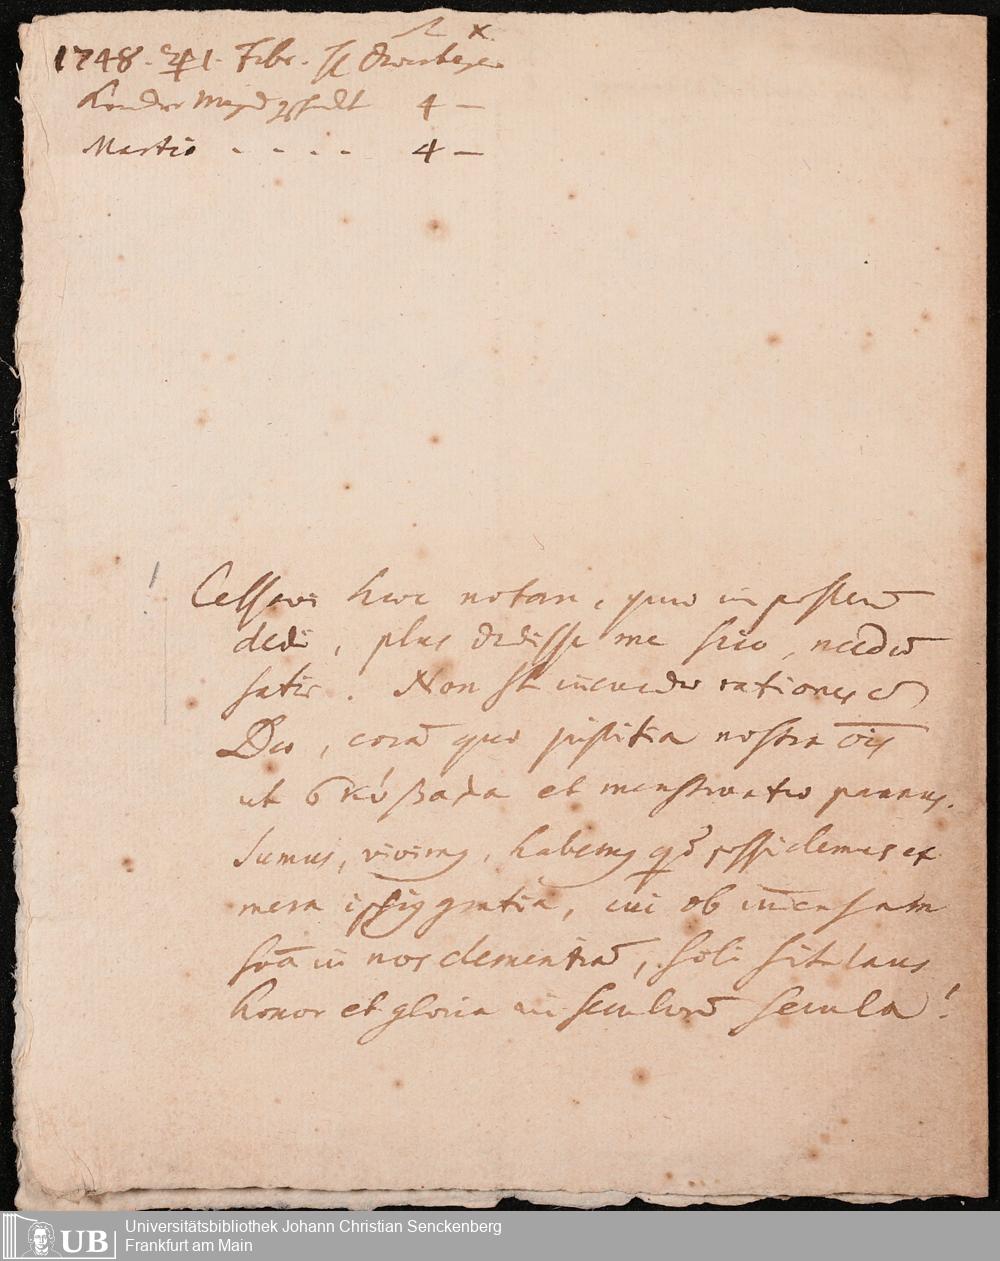 x.
1748. ♃ 1. Febr.
4 —
Martio - - - - 4 —
Cessavi hic notare, quid in posterū
dedi, plus dedisse me scio, necdū
satis. Non st ineundae rationes cū
Deo, corā quo justitia nostra ōis
ut σκύβαλα et menstruatus pannus.
Sumus, vivimq, habemq qd possidemus ex
mera ipsiq gratia, cui ob im̄ensam
suā in nos clementiā, soli sit laus
honor et gloria in seculorū secula!
Universitätsbibliothek Johann Christian Senckenberg
Frankfurt am Main
UB